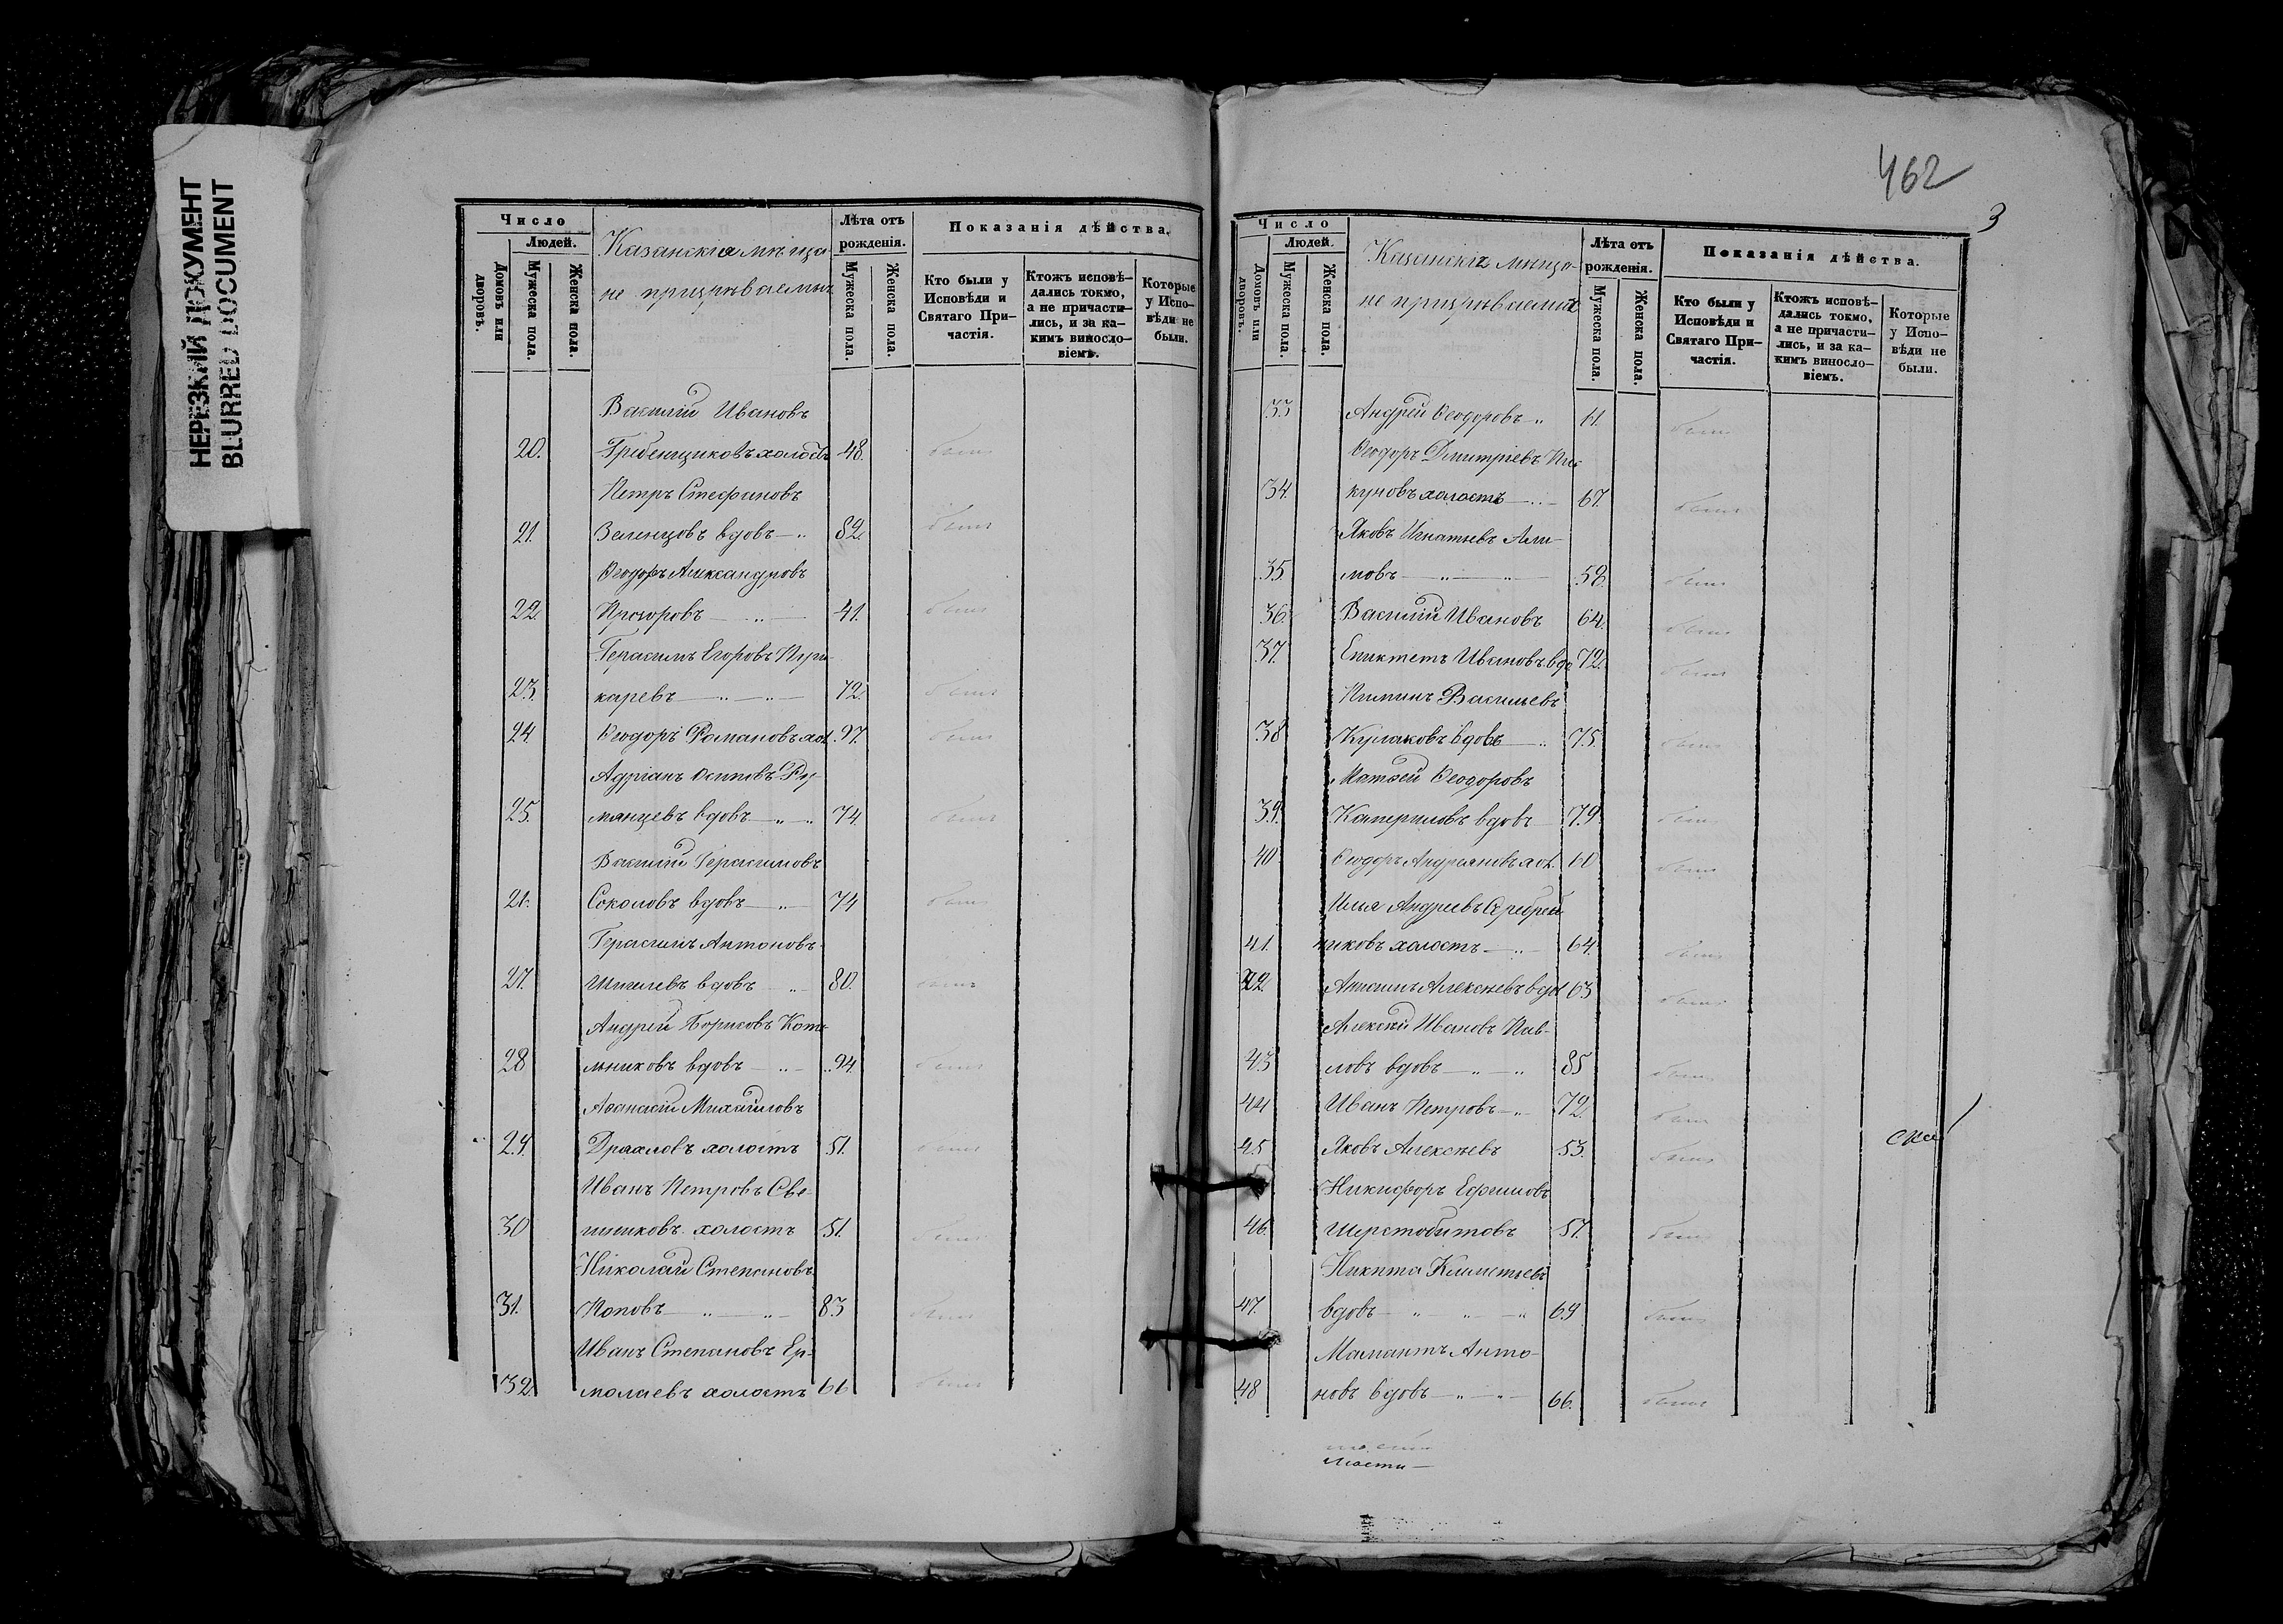 НЕРЕЗКИЙ ДОКУМЕНТ
BLURRED DOCUMENT
Число
Людей.
Домовъ или дворовъ.
Мужеска пола.
Женска пола.
Казанскіе мѣща-
не призрѣваемые
Лѣта отъ рожденія.
Мужеска пола.
Женска пола.
Показанія дѣйства.
Кто были у Исповѣди и Святаго Причастія.
Ктожъ исповѣдались токмо, а не причастились, и за какимъ винословіемъ.
Которые у Исповѣди не были.
Василій Ивановъ
20. Гребенщиковъ холостъ 48. былъ
Петръ Стефановъ
21. Зеленцовъ вдовъ — „ 82 былъ
Ѳеодоръ Александровъ
22. Прозоровъ — „ — 41. былъ
Герасимъ Егоровъ
23. каревъ — „ — „ — 72. былъ
24. Ѳеодоръ Романовъ хол. 97. былъ
Адріанъ Осиповъ Ру-
25. мянцевъ вдовъ — „ — „ 74. былъ
Василій Герасимовъ
26. Соколовъ вдовъ — „ — 74 былъ
Герасимъ Антоновъ
27. Шигелевъ вдовъ — „ — 80. былъ
Андрей Борисовъ Коте-
28 льниковъ вдовъ — „ — 94. былъ
Аѳанасій Михайловъ
29. Драхловъ холостъ 51. былъ
Иванъ Петровъ Све-
30 шниковъ холостъ 51. былъ
Николай Степановъ
31. Поповъ — „ — „ — 83 былъ
Иванъ Степановъ Ер-
32. молаевъ холостъ 66 былъ
462
3
Число
Людей.
Домовъ или дворовъ.
Мужеска пола.
Женска пола.
Казанскіе мѣща-
не призрѣваемые
Лѣта отъ рожденія.
Мужеска пола.
Женска пола.
Показанія дѣйства.
Кто были у Исповѣди и Святаго Причастія.
Ктожъ исповѣдались токмо, а не причастились, и за какимъ винословіемъ.
Которые у Исповѣди не были.
33 Андрей Ѳеодоровъ — „ 61. былъ
Ѳеодоръ Дмитріевъ Пис-
34. куновъ холостъ — „ — 67. былъ
Яковъ Игнатьевъ Али-
35. мовъ — „ — „ — 58. былъ
36. Василій Ивановъ 64. былъ
37. Епиктетъ Ивановъ вдо 72. былъ
Пименъ Васильевъ
38 Кулаковъ вдовъ — „ 75. былъ
Матѳей Ѳеодоровъ
39. вдовъ 79. былъ
40 Ѳеодоръ Андреяновъ хол. 60 былъ
Илья Андреевъ Серебрен-
41. никовъ холостъ — „ — 64. былъ
42. Анисимъ Алексѣевъ вдов 63 былъ
Алексѣй Ивановъ Пав-
43 ловъ вдовъ — „ — „ 85 былъ
44 Иванъ Петровъ — „ 72. былъ
45 Яковъ Алексѣевъ 53. былъ
Никифоръ Ефимовъ
46. Шерстобитовъ 57. былъ
Никита Климентьевъ
47. вдовъ — „ — „ — „ 69 былъ
Мамантъ Анто-
48 новъ вдовъ — „ — „ — 66. былъ